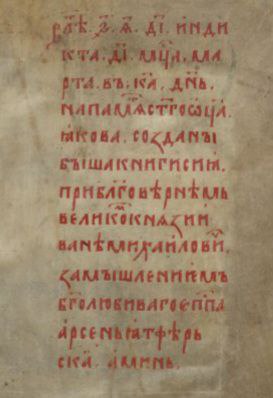 лѣ҃. ѕ҃. ц҃. д҃і. инди
кта. д҃і. мц҃а. ма
рта. въ. к҃а. дн҃ь.
напамѧт ст҃гоѡц҃а.
ꙗкова. созданы
бышакнигисиꙗ.
приблг҃овѣрнѣмь
великоⷨкнѧзии
ванѣмихаиловⷱи.
замышлениемъ
бг҃олюбивагоеп҃па
арсеньꙗтферь
скаⷢ. аминь.